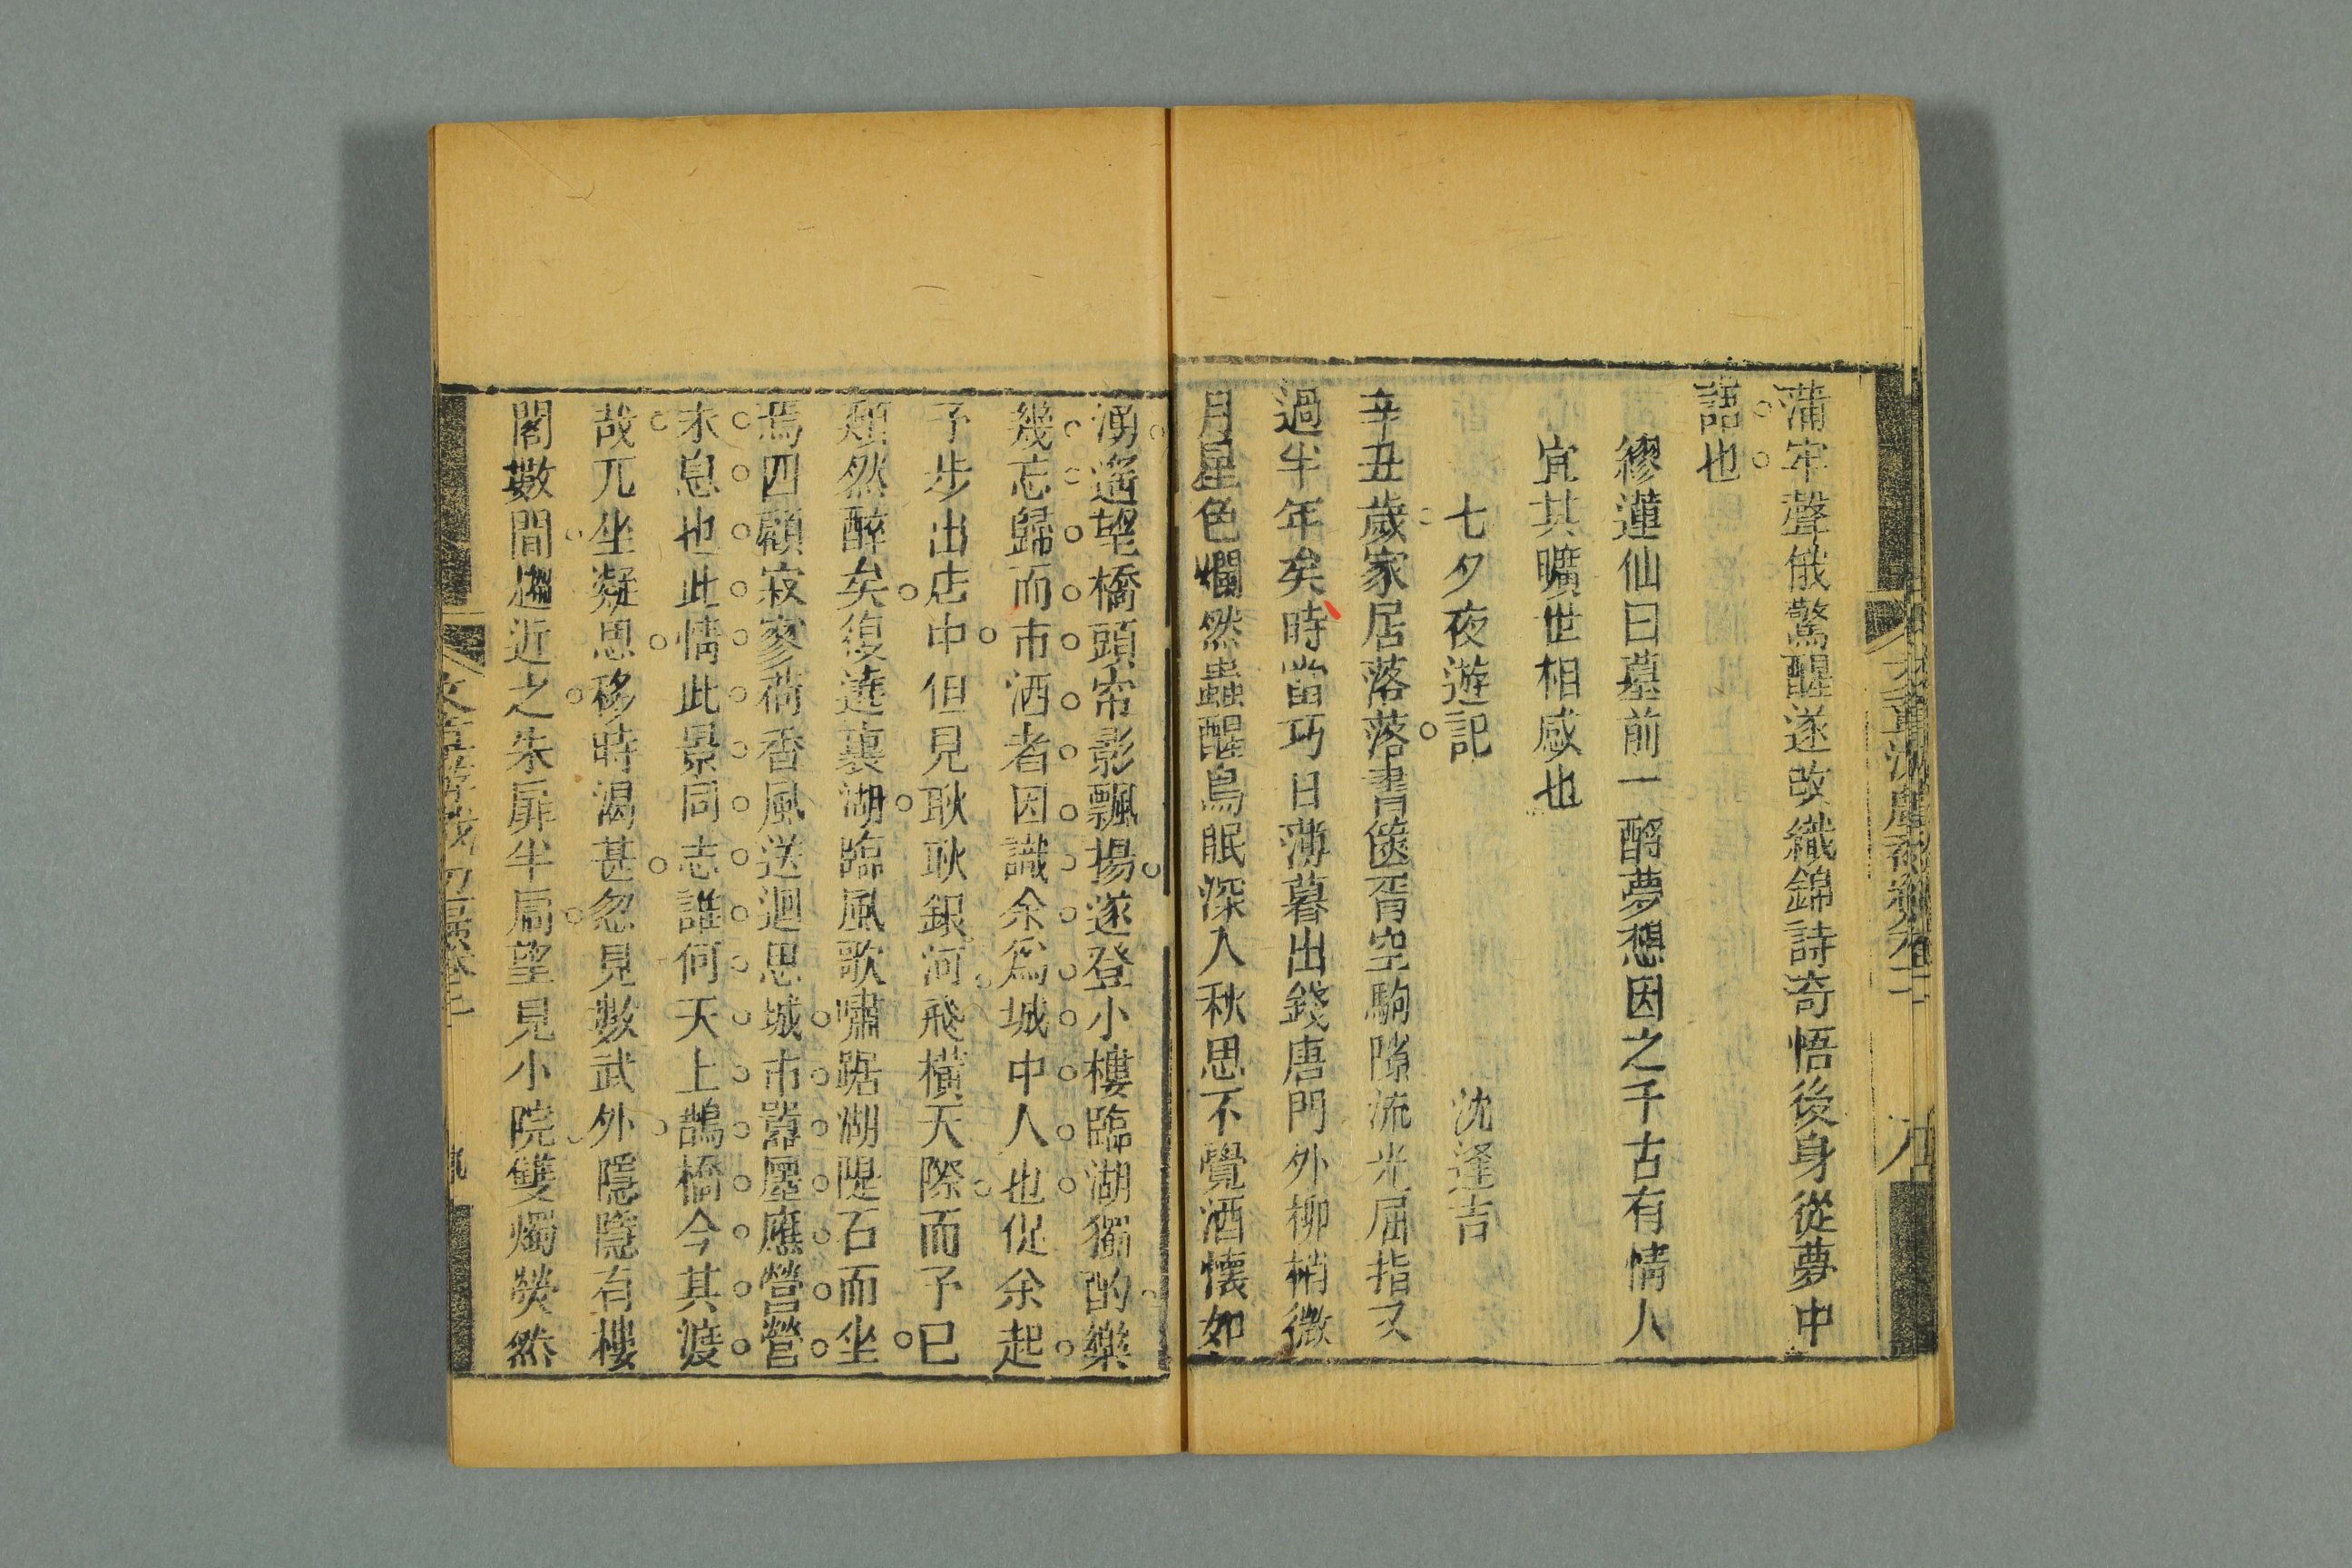 蒲牢聲俄驚醒遂改織錦詩奇悟後身從夢中
語也
繆蓮仙曰墓前一酹夢想因之千古有情人
宜其曠世相感也
七夕夜遊記 沈逢吉
辛丑歲家居落落書篋胥空駒隙流光屈指又
過半年矣時當巧日薄暮出錢唐門外柳梢微
月星色爛然蟲醒鳥眠深入秋思不覺酒懷如
湧遙望橋頭帘影飄揚遂登小樓臨湖獨酌樂
幾忘歸而市酒者因識余爲城中人也促余起
予步出店中但見耿耿銀河飛橫天際而予已
頹然醉矣復遶裏湖臨風歌嘯踞湖隄石而坐
焉四顧寂寥荷香風送迴思城市囂塵應營營
未息也此情此景同志誰何天上鵲橋今其渡
哉兀坐凝思移時渴甚忽見數武外隱隱有樓
閣數間趨近之朱扉半扃望見小院雙燭熒然